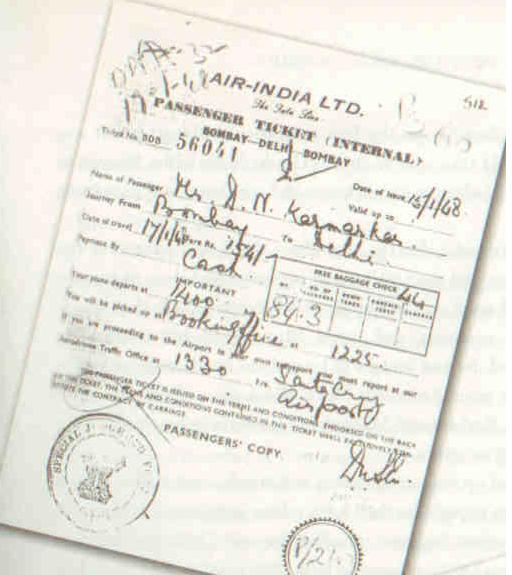 AIR-INDIA LTD.
The Tata Line
PASSENGER TICKET (INTERNAL)
BOMBAY—DELHI—BOMBAY
Ticket No. BDB 56041
Date of Issue 15/1/48
Name of Passenger Mr. D. N. Karmarkar.
Valid up to
Journey From Bombay To Delhi
Date of travel 17/1/48 Fare Rs. 154/-
Payment By Cash
FREE BAGGAGE CHECK 44
84.3
IMPORTANT
Your plane departs at 1400
You will be picked up at Booking Office at 1225.
If you are proceeding to the Airport in your own transport you must report at our
Aerodrome Traffic Office at 1330 Santa Cruz
Airport
THIS PASSENGER TICKET IS ISSUED ON THE TERMS AND CONDITIONS ENDORSED ON THE BACK
OF THE TICKET. THE TERMS AND CONDITIONS CONTAINED IN THIS TICKET SHALL EXCLUSIVELY CON-
STITUTE THE CONTRACT OF CARRIAGE.
PASSENGERS' COPY.
SPECIAL
P/21